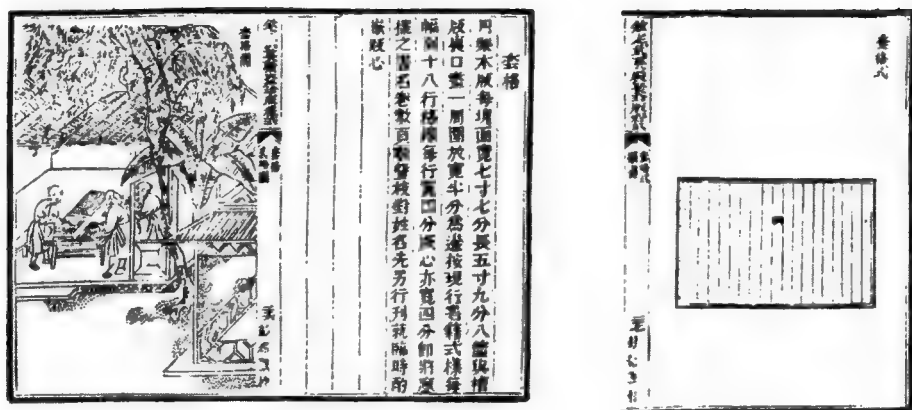 套格
用梨木版每塊面寬七寸七分長五寸九分八釐與槽
版裏口畫一周圍放寬半分爲邊按現行書籍式樣每
幅刻十八行格線每行寬四分版心亦寬四分即將應
擺之書名卷數頁數暨校對姓名先另行刊就臨時酌
嵌版心
套格圖
套格式